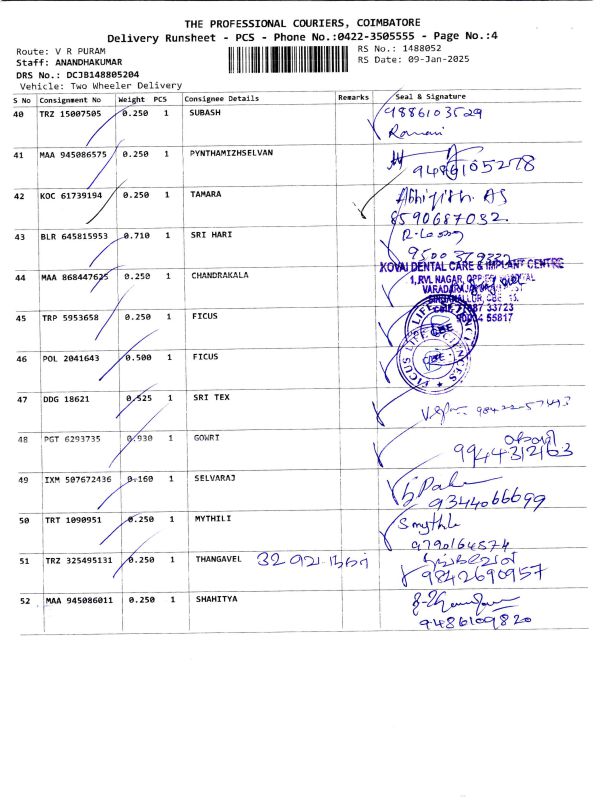 THE PROFESSIONAL COURIERS, COIMBATORE
Delivery Runsheet - PCS - Phone No.:0422-3505555 - Page No.:4
Route: V R PURAM
RS No.: 1488052
Staff: ANANDHAKUMAR
RS Date: 09-Jan-2025
DRS No.: DCJB148805204
Vehicle: Two Wheeler Delivery
S No Consignment No Weight PCS Consignee Details Remarks Seal & Signature
40 TRZ 15007505 0.250 1 SUBASH 9886103529
Ramani
41 MAA 945086575 0.250 1 PYNTHAMIZHSELVAN
9486105278
42 KOC 61739194 0.250 1 TAMARA Abhijith. AS
8590687032
43 BLR 645815953 0.710 1 SRI HARI
KOVAI DENTAL CARE & IMPLANT CENTRE
44 MAA 868447625 0.250 1 CHANDRAKALA 1, RVL NAGAR,
45 TRP 5953658 0.250 1 FICUS
46 POL 2041643 0.500 1 FICUS
FICUS LIFE SCIENCES
CBE
47 DDG 18621 0.525 1 SRI TEX
98422-57493
48 PGT 6293735 0.930 1 GOWRI
9944312163
49 IXM 507672436 0.160 1 SELVARAJ
9344066699
50 TRT 1090951 0.250 1 MYTHILI Smythili
9790164574
51 TRZ 325495131 0.250 1 THANGAVEL
9842690957
52 MAA 945086011 0.250 1 SHAHITYA
9486109820